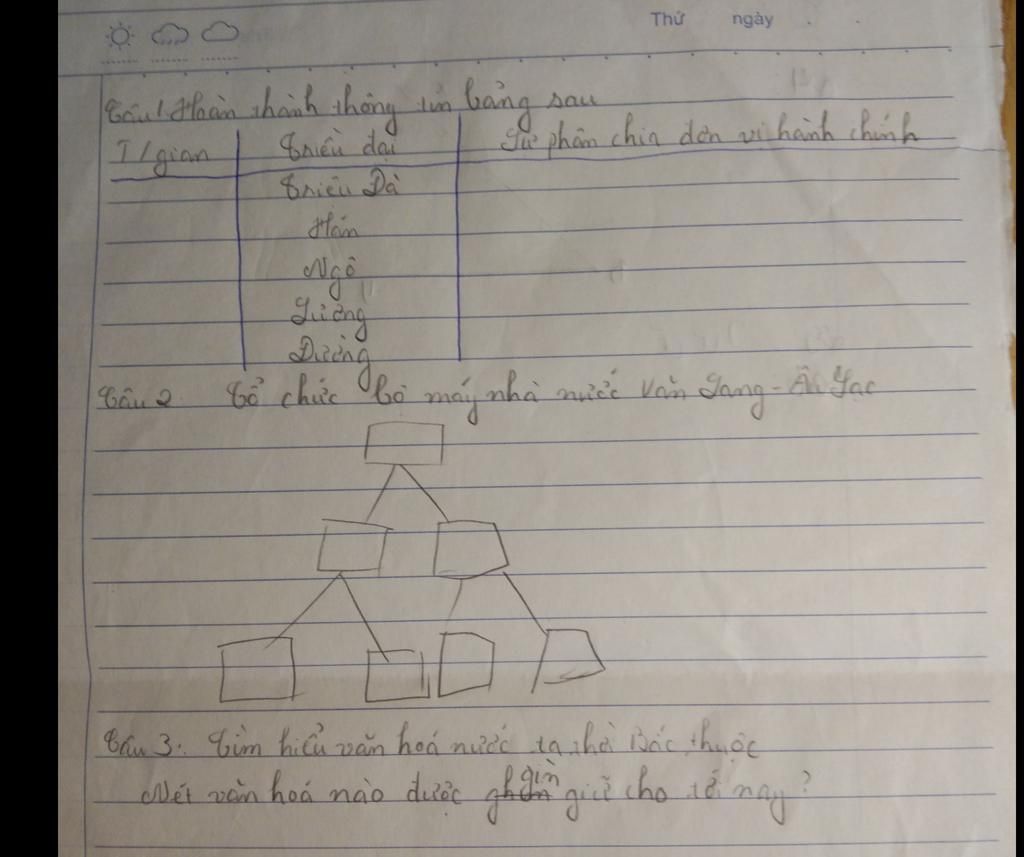 Thứ ngày
Câu 1. Hoàn thành thông tin bảng sau
T/gian Triều đại Sự phân chia đơn vị hành chính
Triệu Đà
Hán
Ngô
Lương
Đường
Câu 2. Tổ chức bộ máy nhà nước Văn Lang - Âu Lạc
Câu 3. Tìm hiểu văn hoá nước ta thời Bắc thuộc
Nét văn hoá nào được gìn giữ cho tới nay?